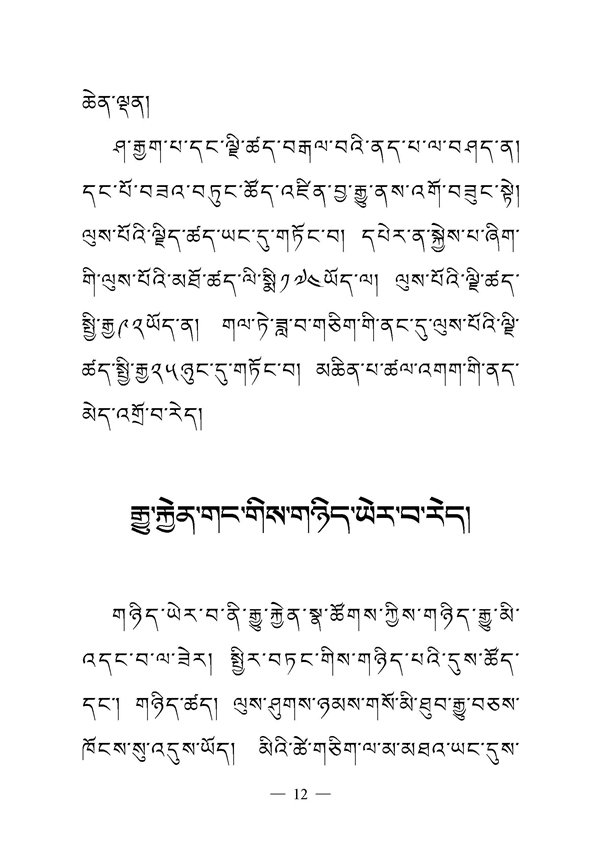 ཆེན་ལྡན།
ཤ་རྒྱག་པ་དང་ལྗི་ཚད་བརྒལ་བའི་ནད་པ་ལ་བཤད་ན།
དང་པོ་བཟའ་བཏུང་ཚོད་འཛིན་བྱ་རྒྱུ་ནས་འགོ་བཟུང་སྟེ།
ལུས་པོའི་ལྗིད་ཚད་ཡང་དུ་གཏོང་བ། དཔེར་ན་སྐྱེས་པ་ཞིག་
གི་ལུས་པོའི་མཐོ་ཚད་ལི་སྨི༡༧༤ཡོད་ལ། ལུས་པོའི་ལྗི་ཚད་
སྤྱི་རྒྱ༩༢ཡོད་ན། གལ་ཏེ་ཟླ་བ་གཅིག་གི་ནང་དུ་ལུས་པོའི་ལྗི་
ཚད་སྤྱི་རྒྱ༢༥ཉུང་དུ་གཏོང་བ། མཆིན་པ་ཚལ་འགག་གི་ནད་
མེད་འགྲོ་བ་རེད།
རྒྱུ་རྐྱེན་གང་གིས་གཉིད་ཡེར་བ་རེད།
གཉིད་ཡེར་བ་ནི་རྒྱུ་རྐྱེན་སྣ་ཚོགས་ཀྱིས་གཉིད་རྒྱུ་མི་
འདང་བ་ལ་ཟེར། སྤྱིར་བཏང་གིས་གཉིད་པའི་དུས་ཚོད་
དང་། གཉིད་ཚད། ལུས་ཤུགས་ཉམས་གསོ་མི་ཐུབ་རྒྱུ་བཅས་
ཁོངས་སུ་འདུས་ཡོད། མིའི་ཚེ་གཅིག་ལ་མ་མཐའ་ཡང་དུས་
— 12 —